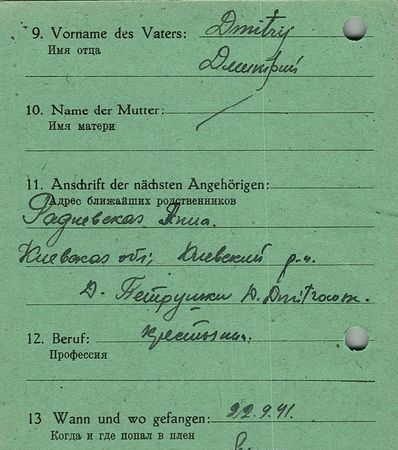 9. Vorname des Vaters: Dmitry
Имя отца Дмитрий
10. Name der Mutter:
Имя матери
11. Anschrift der nächsten Angehörigen:
Адрес ближайших родственников
Анна.
Киевская обл, Киевский р-н.
Д. Петрушки
12. Beruf: крестьянин.
Профессия
13 Wann und wo gefangen: 22.9.41.
Когда и где попал в плен